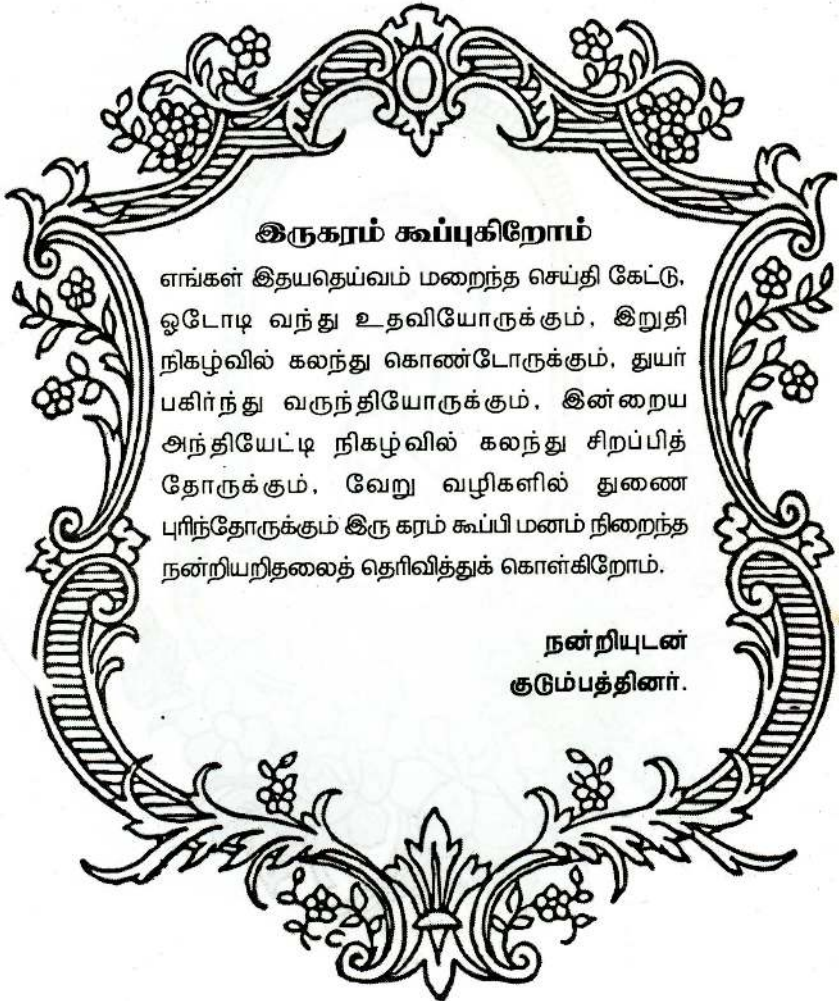 இருகரம் கூப்புகிறோம்
எங்கள் இதயதெய்வம் மறைந்த செய்தி கேட்டு,
ஓடோடி வந்து உதவியோருக்கும், இறுதி
நிகழ்வில் கலந்து கொண்டோருக்கும், துயர்
பகிர்ந்து வருந்தியோருக்கும், இன்றைய
அந்தியேட்டி நிகழ்வில் கலந்து சிறப்பித்
தோருக்கும், வேறு வழிகளில் துணை
புரிந்தோருக்கும் இரு கரம் கூப்பி மனம் நிறைந்த
நன்றியறிதலைத் தெரிவித்துக் கொள்கிறோம்.
நன்றியுடன்
குடும்பத்தினர்.